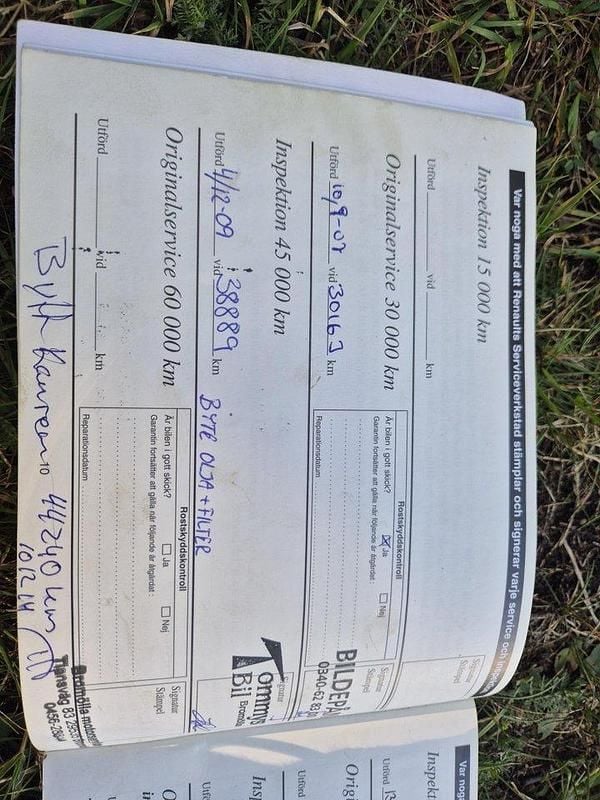 Var noga med att Renaults Serviceverkstad stämplar och signerar varje service och
Inspektion 15 000 km
Utförd vid km
Signatur
Stämpel
Originalservice 30 000 km
Utförd 10/9-07 vid 30163 km
Rostskyddskontroll
Är bilen i gott skick? Ja Nej
Garantin fortsätter att gälla när följande är åtgärdat:
Reparationsdatum
Signatur
Stämpel
0340-62 83
Inspektion 45 000 km
Utförd 4/12-09 vid 38889 km
BYTE OLJA + FILTER
Signatur
Tommys
Bil Bromölla
Originalservice 60 000 km
Utförd vid km
Rostskyddskontroll
Är bilen i gott skick? Ja Nej
Garantin fortsätter att gälla när följande är åtgärdat:
Reparationsdatum
Signatur
Stämpel
Bytt Kamrem 44240 km
10.12.14
Var nog
Inspekt
Utförd
Origi
Utförd
Insp
Utförd